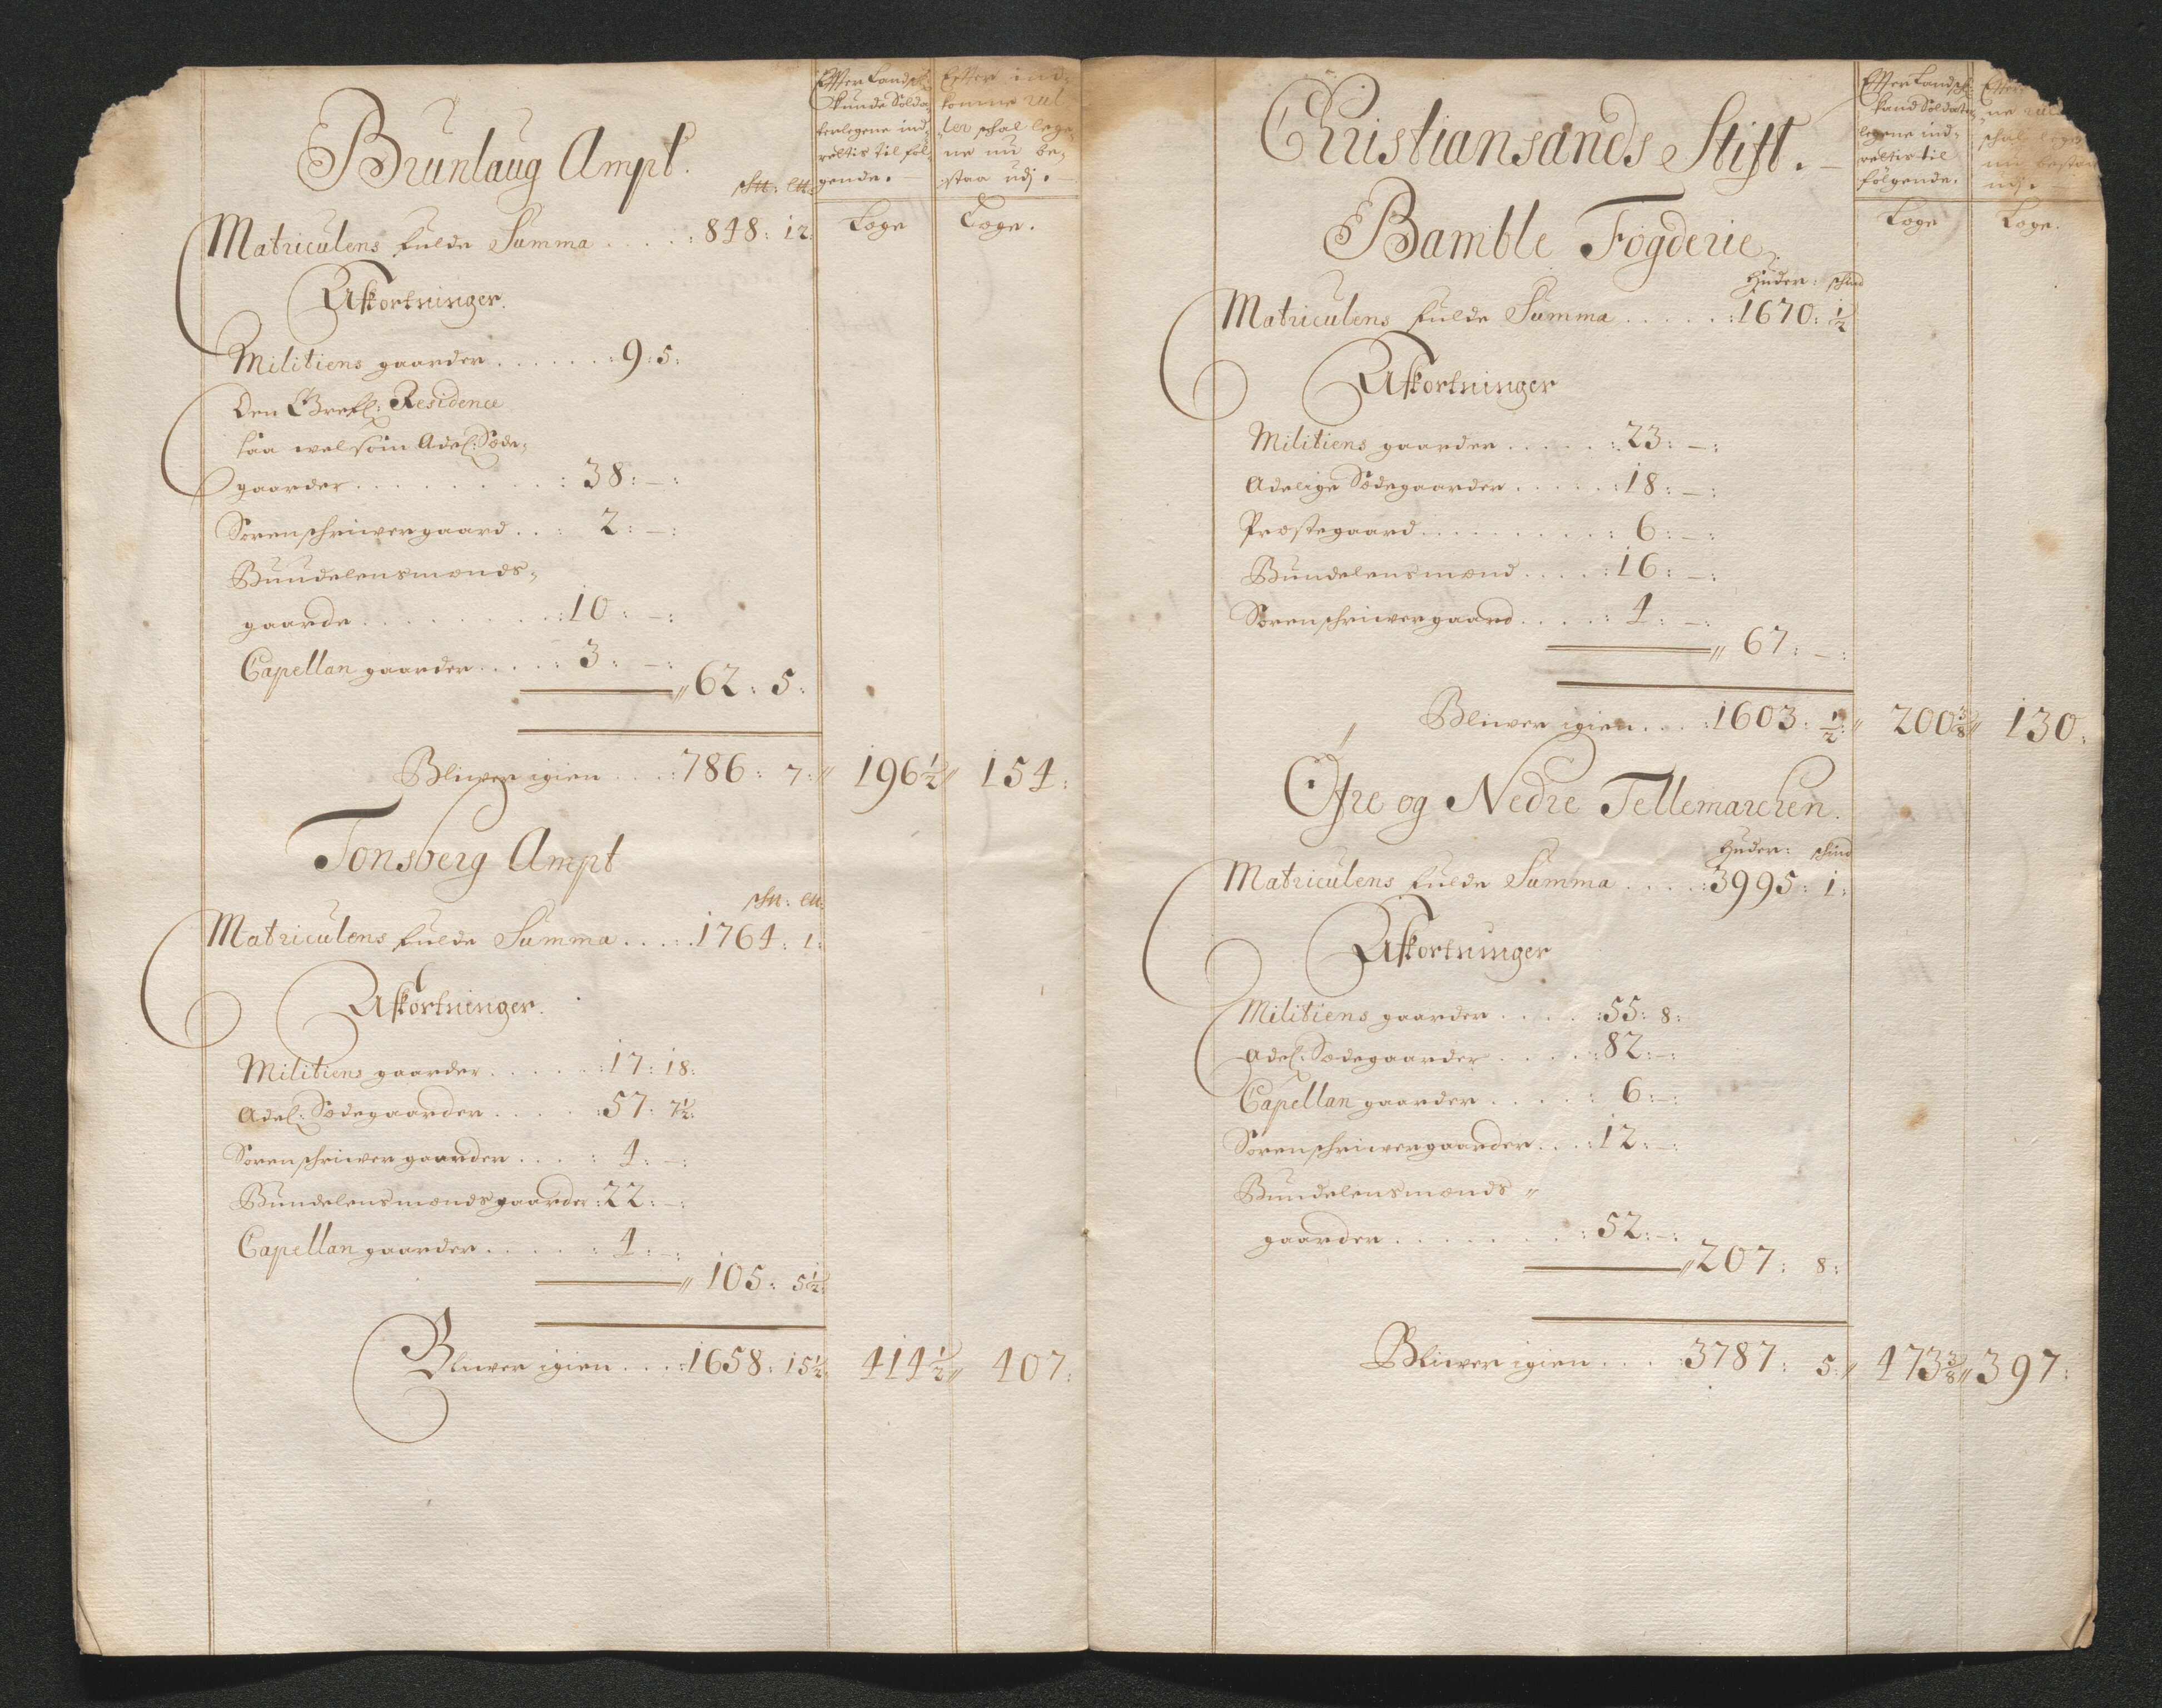 Brunlaug Ampt.
Effter Landsch:
kunde Solda=
terlegene ind=
rettis til føl=
gende.
Effter ind=
komne rul=
ler schal lege=
ne nu be=
staa udj.
Lege
Lege.
Matriculens fulde Summa . . . . : 848: 12:
Afkortninger.
Militiens gaarder . . . . . . : 9: 5:
Den Grefl: Residence
saa welsom Adel: Sæde=
gaarder . . . . . . . . . : 38: —:
Sorenschriwergaard . . : 2: —:
Bundelensmends=
gaarde . . . . . . . . . : 10: —:
Capellan gaarder . . . . : 3: —:
62: 5:
Bliwer igien . . . : 786: 7: 196½ 154:
Tonsberg Ampt
Matriculens fulde Summa . . . . : 1764: 1:
Afkortninger.
Militiens gaarder . . . . . : 17: 18:
Adel: Sædegaarder . . . . : 57: 7½:
Sorenschriwer gaarder . . . : 4: —:
Bundelensmendsgaarder : 22: —:
Capellan gaarder . . . . . : 4: —:
105: 5½:
Bliwer igien . . . : 1658: 15½ 414½ 407:
Christiansands Stift.
Effter Landsch:
kand Soldater
legene ind=
rettis til
følgende.
Effter
ne rul
schal lege
nu bestaa
udj.
Lege
Lege.
Bamble Fogderie
Huder: schind
Matriculens fulde Summa . . . . . : 1670: ½
Afkortninger
Militiens gaarder . . . . . : 23: —:
Adelige Sædegaarder . . . . . : 18: —:
Præstegaard . . . . . . . . . : 6: —:
Bundelensmend . . . . : 16: —:
Sorenschriwergaard . . . . : 4: —:
67: —:
Bliwer igien . . . : 1603: ½: 200⅜ 130:
Ofre og Nedre Tellemarchen.
Huder: schind
Matriculens fulde Summa . . . . : 3995: 1:
Afkortninger
Militiens gaarder . . . . : 55: 8:
Adel: Sædegaarder . . . . : 82: —:
Capellan gaarder . . . . . : 6: —:
Sorenschriwergaarder . . . : 12: —:
Bundelensmends=
gaarder . . . . . . . . : 52: —:
207: 8:
Bliwer igien . . . . 3787: 5: 473⅜ 397: